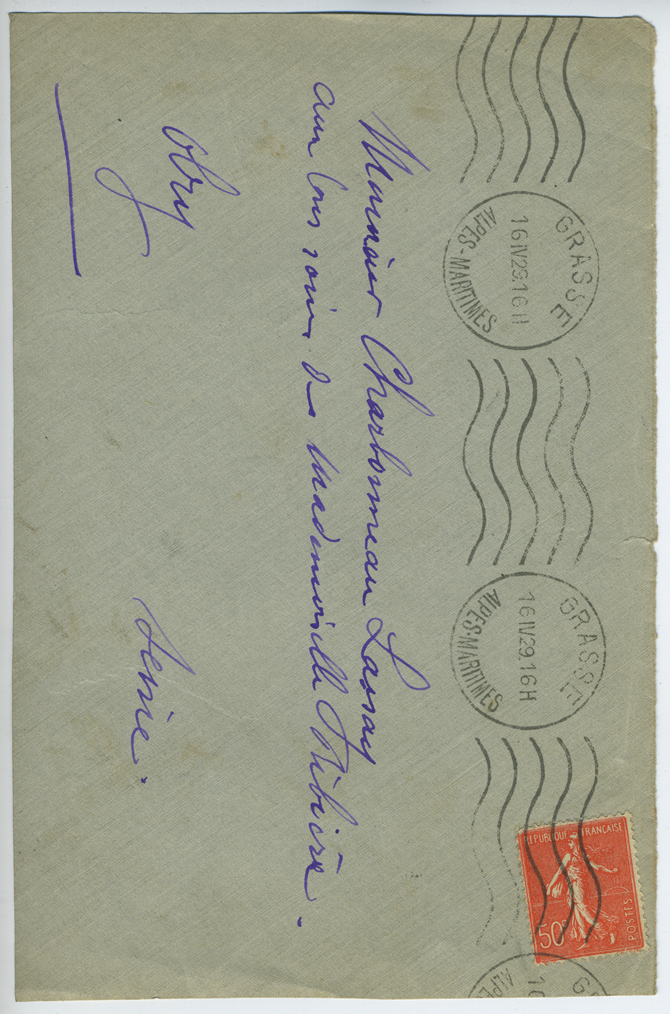 GRASSE
16 IV 29. 16 H
ALPES-MARITIMES
GRASSE
16 IV 29. 16 H
ALPES-MARITIMES
G
1
A
REPUBLIQUE FRANÇAISE
50c
POSTES
Monsieur Charbonneau Lassay
aux bons soins de Mademoiselle Ribière.
Orly
Seine.